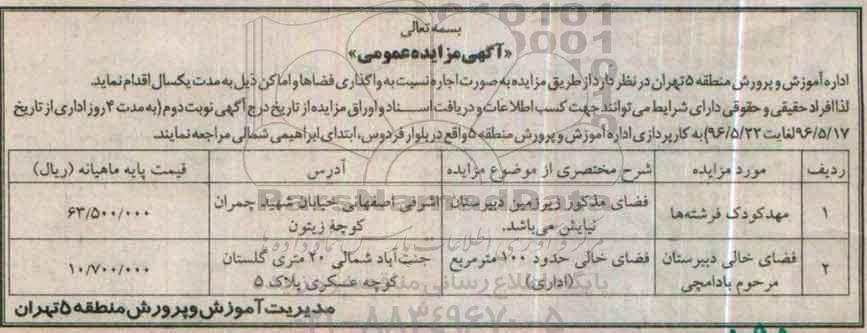 بسمه تعالی
«آگهی مزایده عمومی»
اداره آموزش و پرورش منطقه ۵ تهران در نظر دارد از طریق مزایده به صورت اجاره نسبت به واگذاری فضاها و اماکن ذیل به مدت یکسال اقدام نماید.
لذا افراد حقیقی و حقوقی دارای شرایط می توانند جهت کسب اطلاعات و دریافت اسناد و اوراق مزایده از تاریخ درج آگهی نوبت دوم (به مدت ۴ روز اداری از تاریخ
۹۶/۵/۱۷ لغایت ۹۶/۵/۲۲) به کارپردازی اداره آموزش و پرورش منطقه ۵ واقع در بلوار فردوس، ابتدای ابراهیمی شمالی مراجعه نمایند.
ردیف مورد مزایده شرح مختصری از موضوع مزایده آدرس قیمت پایه ماهیانه (ریال)
۱ مهدکودک فرشته‌ها فضای مذکور زیرزمین دبیرستان نیایش می‌باشد. اشرفی اصفهانی خیابان شهید چمران کوچۀ زیتون ۶۳/۵۰۰/۰۰۰
۲ فضای خالی دبیرستان مرحوم بادامچی فضای خالی حدود ۱۰۰ مترمربع (اداری) جنت‌آباد شمالی ۲۰ متری گلستان کوچه عسکری پلاک ۵ ۱۰/۷۰۰/۰۰۰
مدیریت آموزش و پرورش منطقه ۵ تهران